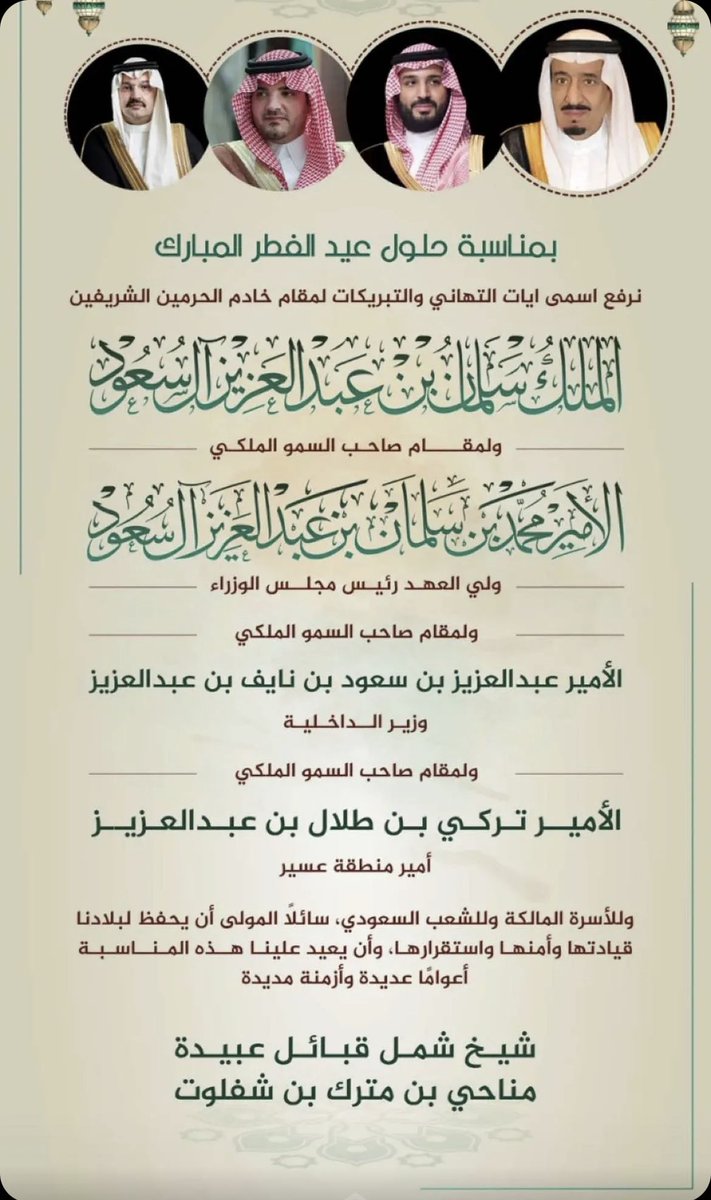 بمناسبة حلول عيد الفطر المبارك
نرفع اسمى ايات التهاني والتبريكات لمقام خادم الحرمين الشريفين
الملك سلمان بن عبدالعزيز آل سعود
ولمقـــام صاحب السمو الملكي
الأمير محمد بن سلمان بن عبدالعزيز آل سعود
ولي العهد رئيس مجلس الوزراء
ولمقام صاحب السمو الملكي
الأمير عبدالعزيز بن سعود بن نايف بن عبدالعزيز
وزير الـداخلـيـة
ولمقام صاحب السمو الملكي
الأميـر تـركـي بـن طلال بن عبـدالعـزيـز
أمير منطقة عسير
وللأسرة المالكة وللشعب السعودي، سائلًا المولى أن يحفظ لبلادنا
قيادتها وأمنها واستقرارها، وأن يعيد علينا هـذه المـنـاسـبـة
أعوامًا عديدة وأزمنة مديدة
شيـخ شمـل قبـائـل عبيـدة
مناحي بن مترك بن شفلوت